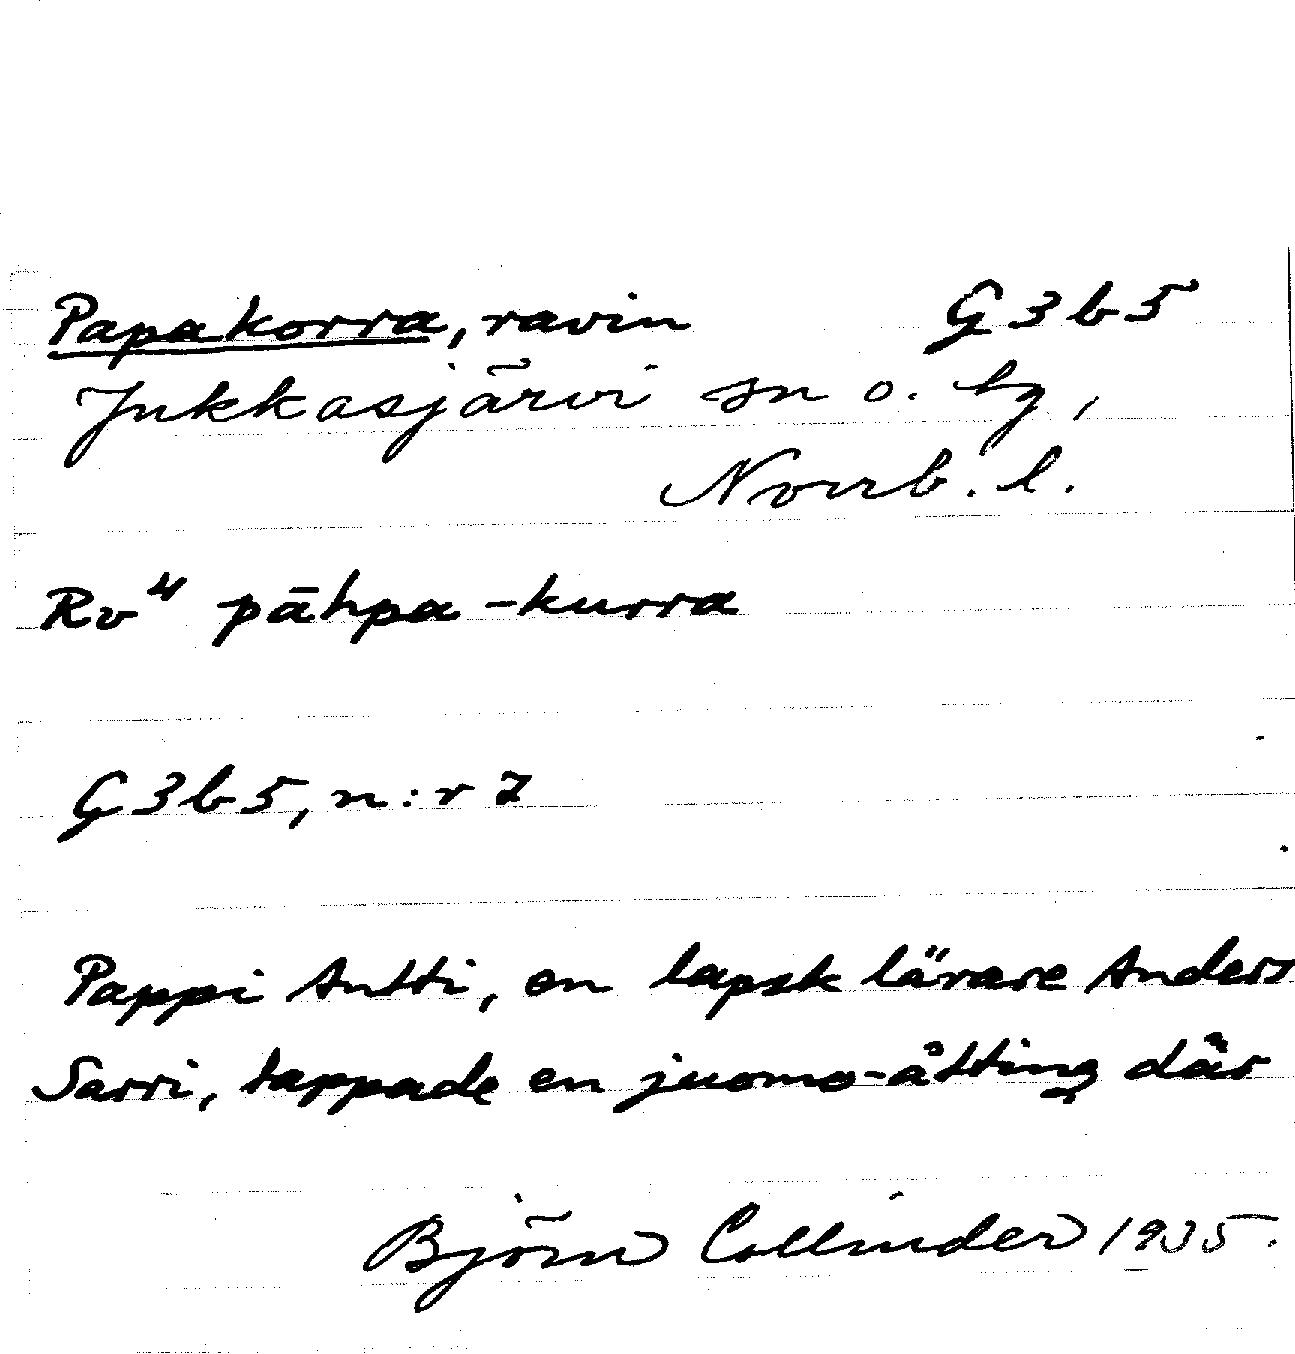 Papakorra, ravin G3b5
Jukkasjärvi sn o. tg,
Norrb. l.
Rv⁴ pāhpa-kurra
G3b5, n:r 7
Pappi Antti, en lapsk lärare Anders
Sarri, tappade en juomo-åtting där
Björn Collinder 1935.